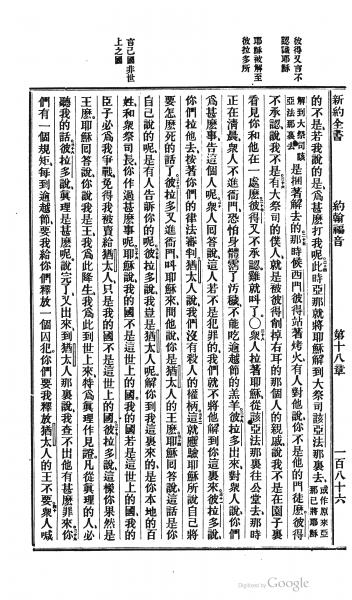 新約全書　約翰福音　第十八章　一百八十六
彼得又言不
認識耶穌
耶穌被解至
彼拉多所
言己國非世
上之國
的不是、若我說的是、爲甚麽打我呢、此時亞那就將耶穌解到大祭司該亞法那裏去、或作原來亞那已將耶穌
解到大祭司該亞法那裏去、是捆著解去的、那時候西門彼得站著烤火、有人對他說、你不是他的門徒麽、彼得
不承認、說我不是、有大祭司的僕人、就是被彼得削掉右耳的那個人的親戚、說我不是在園子裏
看見你和他在一處麽、彼得又不承認、雞就叫了、〇衆人拉著耶穌、從該亞法那裏往公堂去、那時
正在清晨、衆人不進衙門、恐怕身體霑了汚穢、不能吃逾越節的羔羊、彼拉多出來、對衆人說、你們
爲甚麽事告這個人呢、衆人回答說、這人若不是犯罪的、我們就不將他解到你這裏來、彼拉多說、
你們拉他去、按著你們的律法審判、猶太人說、我們沒有殺人的權柄、這就應驗耶穌所說自己將
要怎麽死的話了、彼拉多又進衙門、叫耶穌來、問他說、你是猶太人的王麽、耶穌回答說、這話是你
自己說的呢、是有人告訴你的呢、彼拉多說、我豈是猶太人呢、解你到我這裏來的、是你本地的百
姓、和衆祭司長、你作過甚麽事呢、耶穌說、我的國不是這世上的國、我的國若是這世上的國、我的
臣子必爲我爭戰、免得我被賣給猶太人、只是我的國不是這世上的國、彼拉多說、這樣、你果然是
王麽、耶穌回答說、你說我是王、我爲此降生、我爲此到世上來、特爲眞理作見證、凡從眞理的人、必
聽我的話、彼拉多說、眞理是甚麽呢、說完了、又出來到猶太人那裏、說我查不出他有甚麽罪來、你
們有一個規矩、每到逾越節、要我給你們釋放一個囚犯、你們要我釋放猶太人的王不要、衆人喊
Digitized by Google